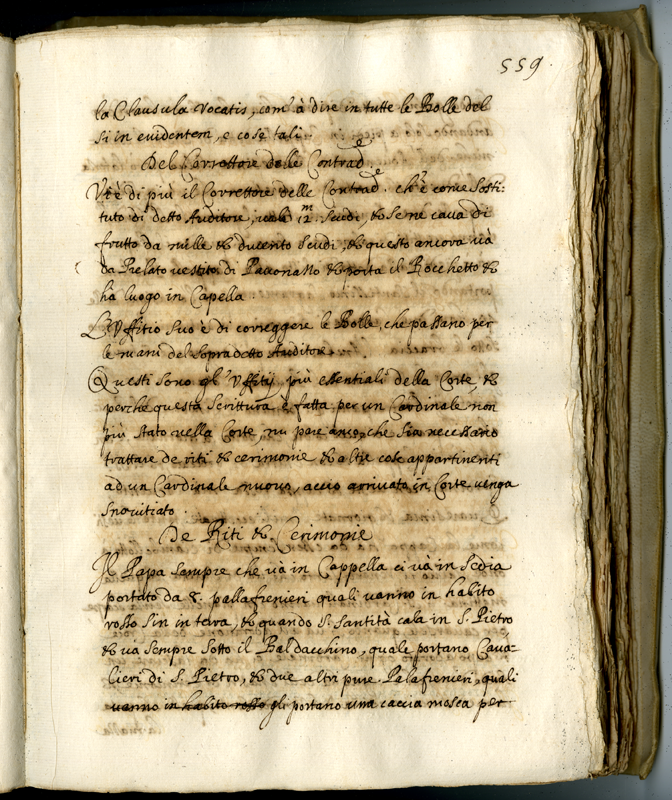 559.
la Clausula vocatis, com'à dire in tutte le Bolle del
si in evidentem, e cose tali
Del Correttore delle Contrad.e
Vi è di più il Correttore delle Contrad.e ch'è come Sosti:
tuto di detto Auditore, vale 12.m Scudi, & se ne cava di
frutto da mille & ducento Scudi, & questo ancora và
da Prelato vestito di Paonazzo & porta il Rocchetto &
hà luogo in Capella.
L'Vffitio suo è di correggere le Bolle, che passano per
le mani del sopradetto Auditore.
Questi sono gl'Vffitij più essentiali della Corte, &
perche questa Scrittura è fatta per un Cardinale non
più stato nella Corte, mi pare anco, che sia necessario
trattare de riti & cerimonie & altre cose appartinenti
ad un Cardinale nuovo, acciò arrivato in Corte venga
Snovitiato.
De Riti &. Cerimonie
Il Papa sempre che và in Cappella ci và in Sedia
portato da 8. pallafrenieri quali vanno in habito
rosso sin in terra, & quando S. Santità cala in S. Pietro
& và sempre sotto il Baldacchino, quale portano Cava-
lieri di S. Pietro, & due altri pure Palafrenieri, quali
vanno in habito rosso gli portano una caccia mosca per